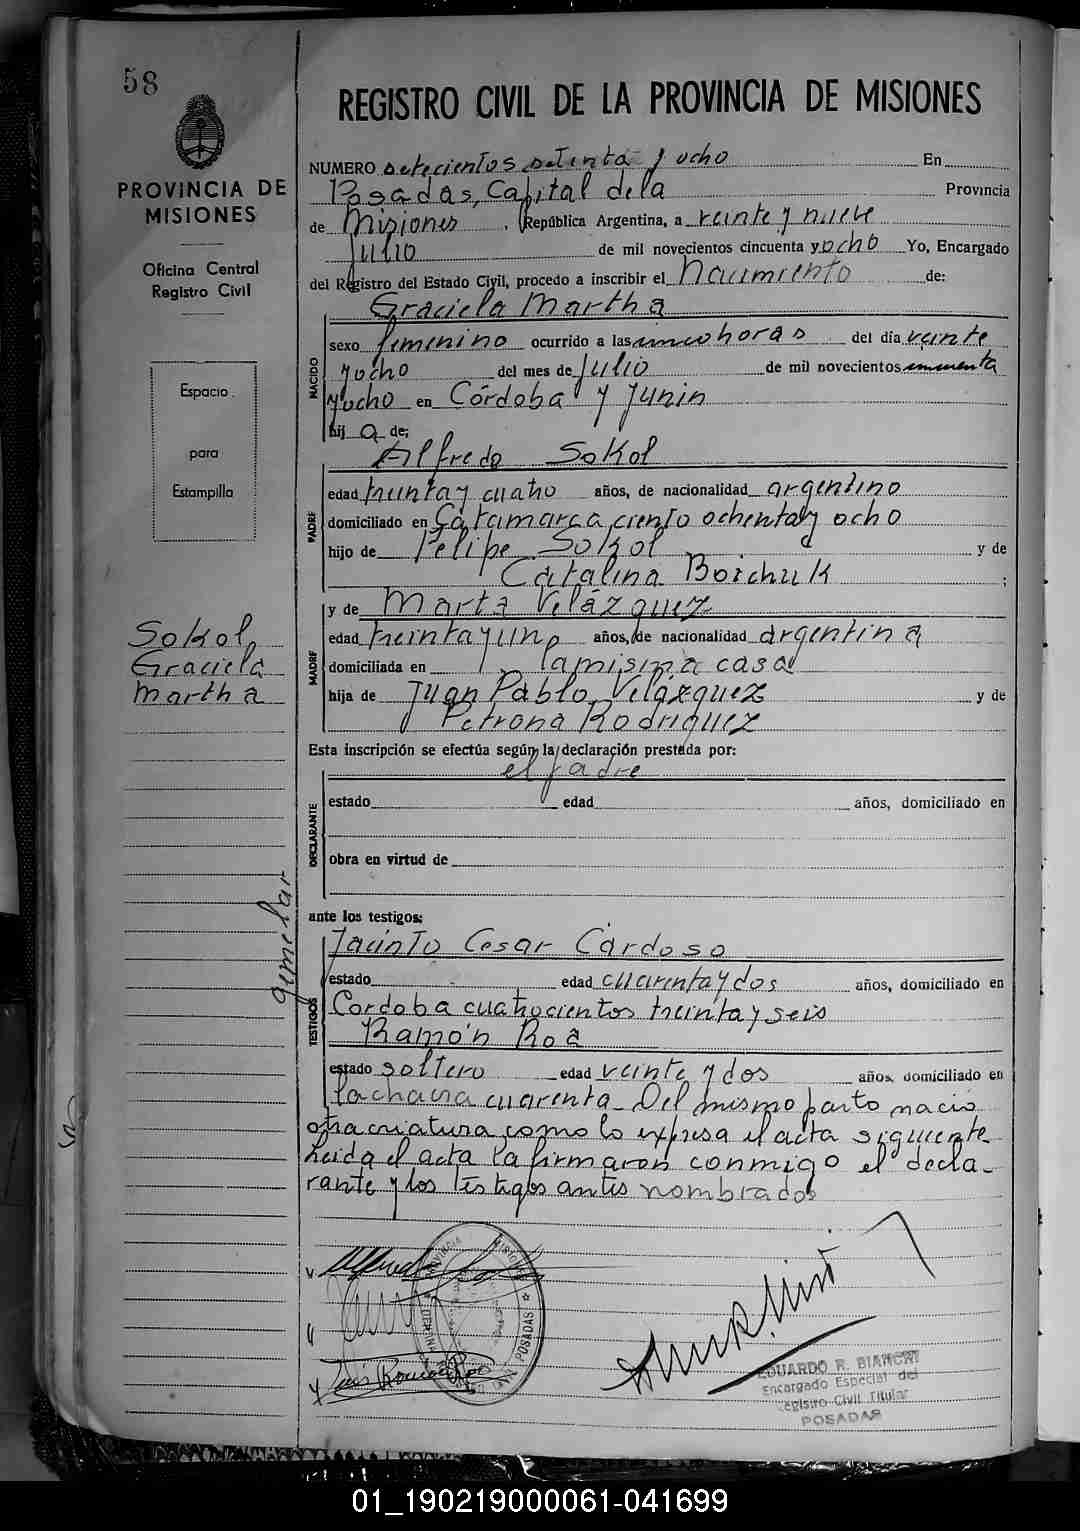 58
REGISTRO CIVIL DE LA PROVINCIA DE MISIONES
PROVINCIA DE
MISIONES
Oficina Central
Registro Civil
Espacio
para
Estampilla
Sokol,
Graciela
Martha
gemelar
NUMERO setecientos setenta y ocho En
Posadas, Capital de la Provincia
de Misiones, República Argentina, a veinte y nueve
Julio de mil novecientos cincuenta y ocho Yo, Encargado
del Registro del Estado Civil, procedo a inscribir el Nacimiento de:
Graciela Martha
NACIDO
sexo femenino ocurrido a las cinco horas del día veinte
y ocho del mes de Julio de mil novecientos cincuenta
y ocho en Córdoba y Junin
hij a de:
Alfredo Sokol
PADRE
edad treinta y cuatro años, de nacionalidad argentino
domiciliado en Catamarca ciento ochenta y ocho
hijo de Felipe Sokol y de
Catalina Boichuk ;
y de Marta Velázquez
MADRE
edad treinta y uno años, de nacionalidad argentina
domiciliada en la misma casa
hija de Juan Pablo Velázquez y de
Petrona Rodriguez
Esta inscripción se efectúa según la declaración prestada por:
el padre
DECLARANTE
estado edad años, domiciliado en
obra en virtud de
ante los testigos:
Jacinto Cesar Cardoso
TESTIGOS
estado edad cuarenta y dos años, domiciliado en
Cordoba cuatrocientos treinta y seis
Ramón Roa
estado soltero edad veinte y dos años, domiciliado en
la chacra cuarenta. Del mismo parto nacio
otra criatura como lo expresa el acta siguiente
Leida el acta la firmaron conmigo el decla-
rante y los testigos antes nombrados
PROVINCIA MISIONES
POSADAS
EDUARDO R. BIANCHI
Encargado Especial del
Registro Civil Titular
POSADAS
01_190219000061-041699